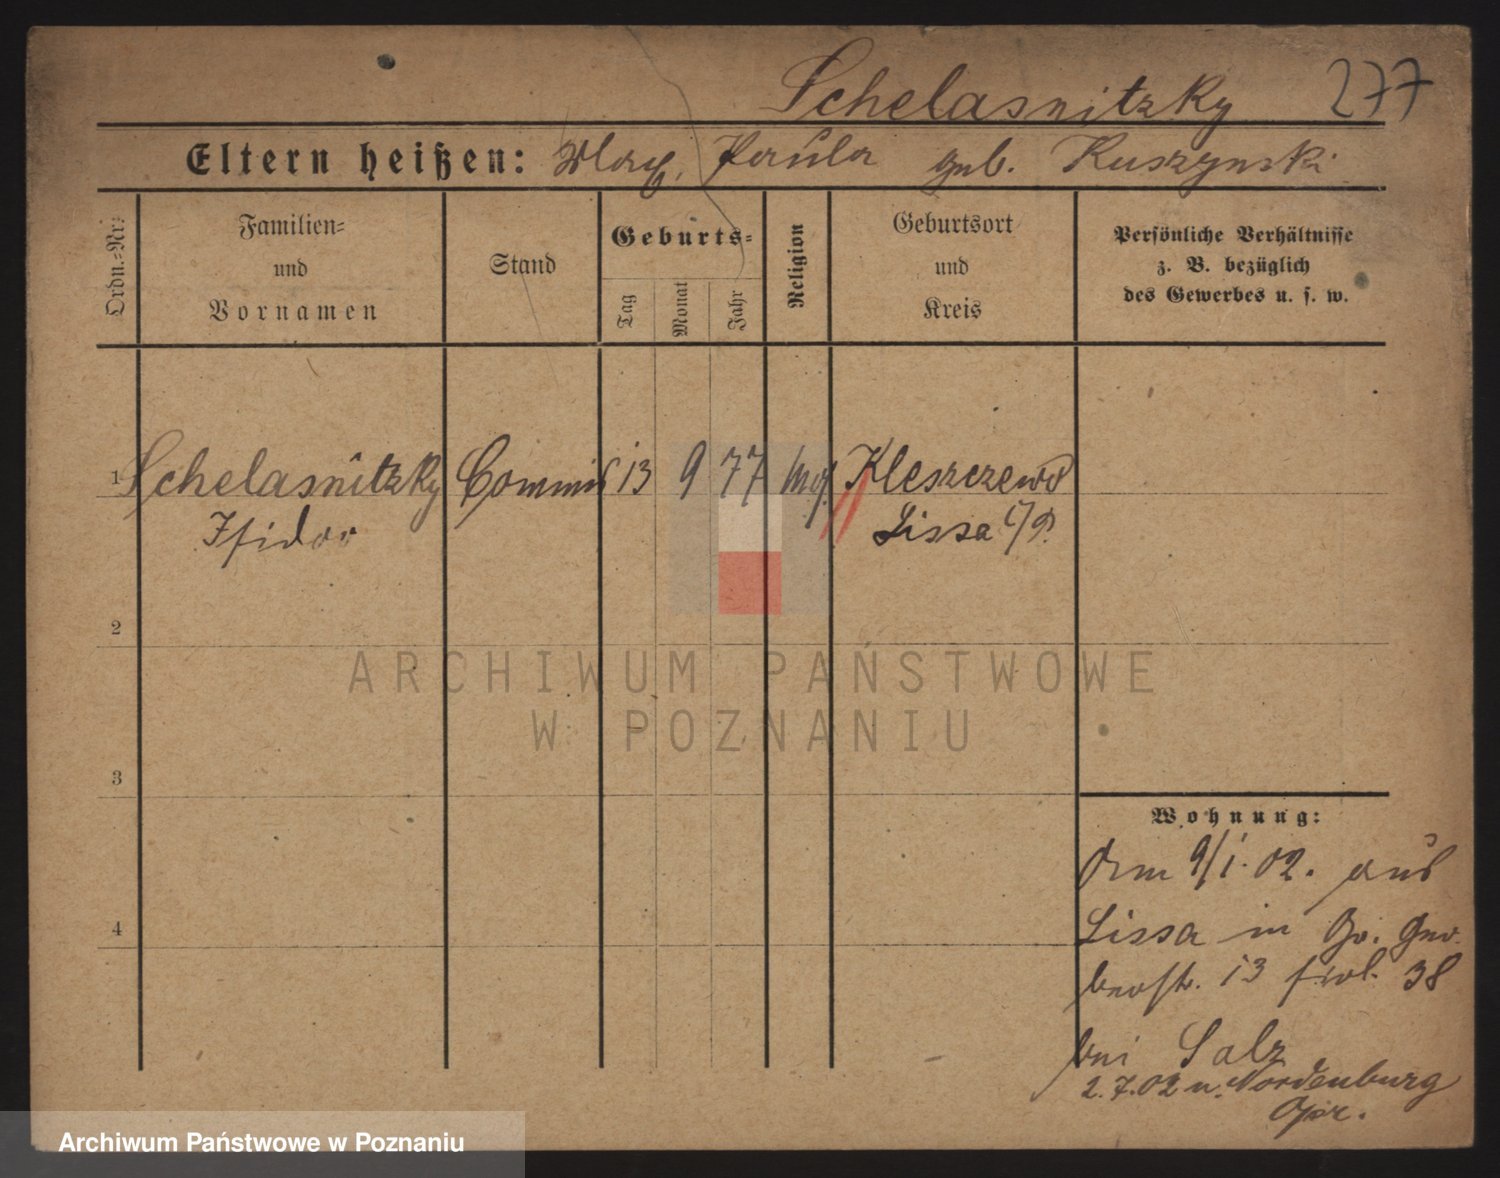 Schelasnitzky 277
Eltern heißen: Max, Paula geb. Kuszynski
Ordn.-Nr.
Familien-
und
Vornamen
Stand
Geburts-
Tag
Monat
Jahr
Religion
Geburtsort
und
Kreis
Persönliche Verhältnisse
z. B. bezüglich
des Gewerbes u. s. w.
1 Schelasnitzky Commis 13 9 77 mos. Kleszczewo
Isidor Lissa i/P.
2
3
4
ARCHIWUM PAŃSTWOWE
W POZNANIU
Wohnung:
Am 9/1.02. aus
Lissa in Gr. Ger
berstr. 13 38
bei Salz
2.7.02 n. Nordenburg
Opr.
Archiwum Państwowe w Poznaniu